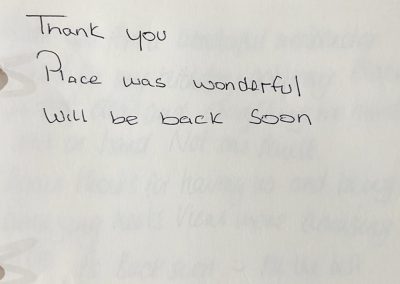 Thank you
Place was wonderful
Will be back soon